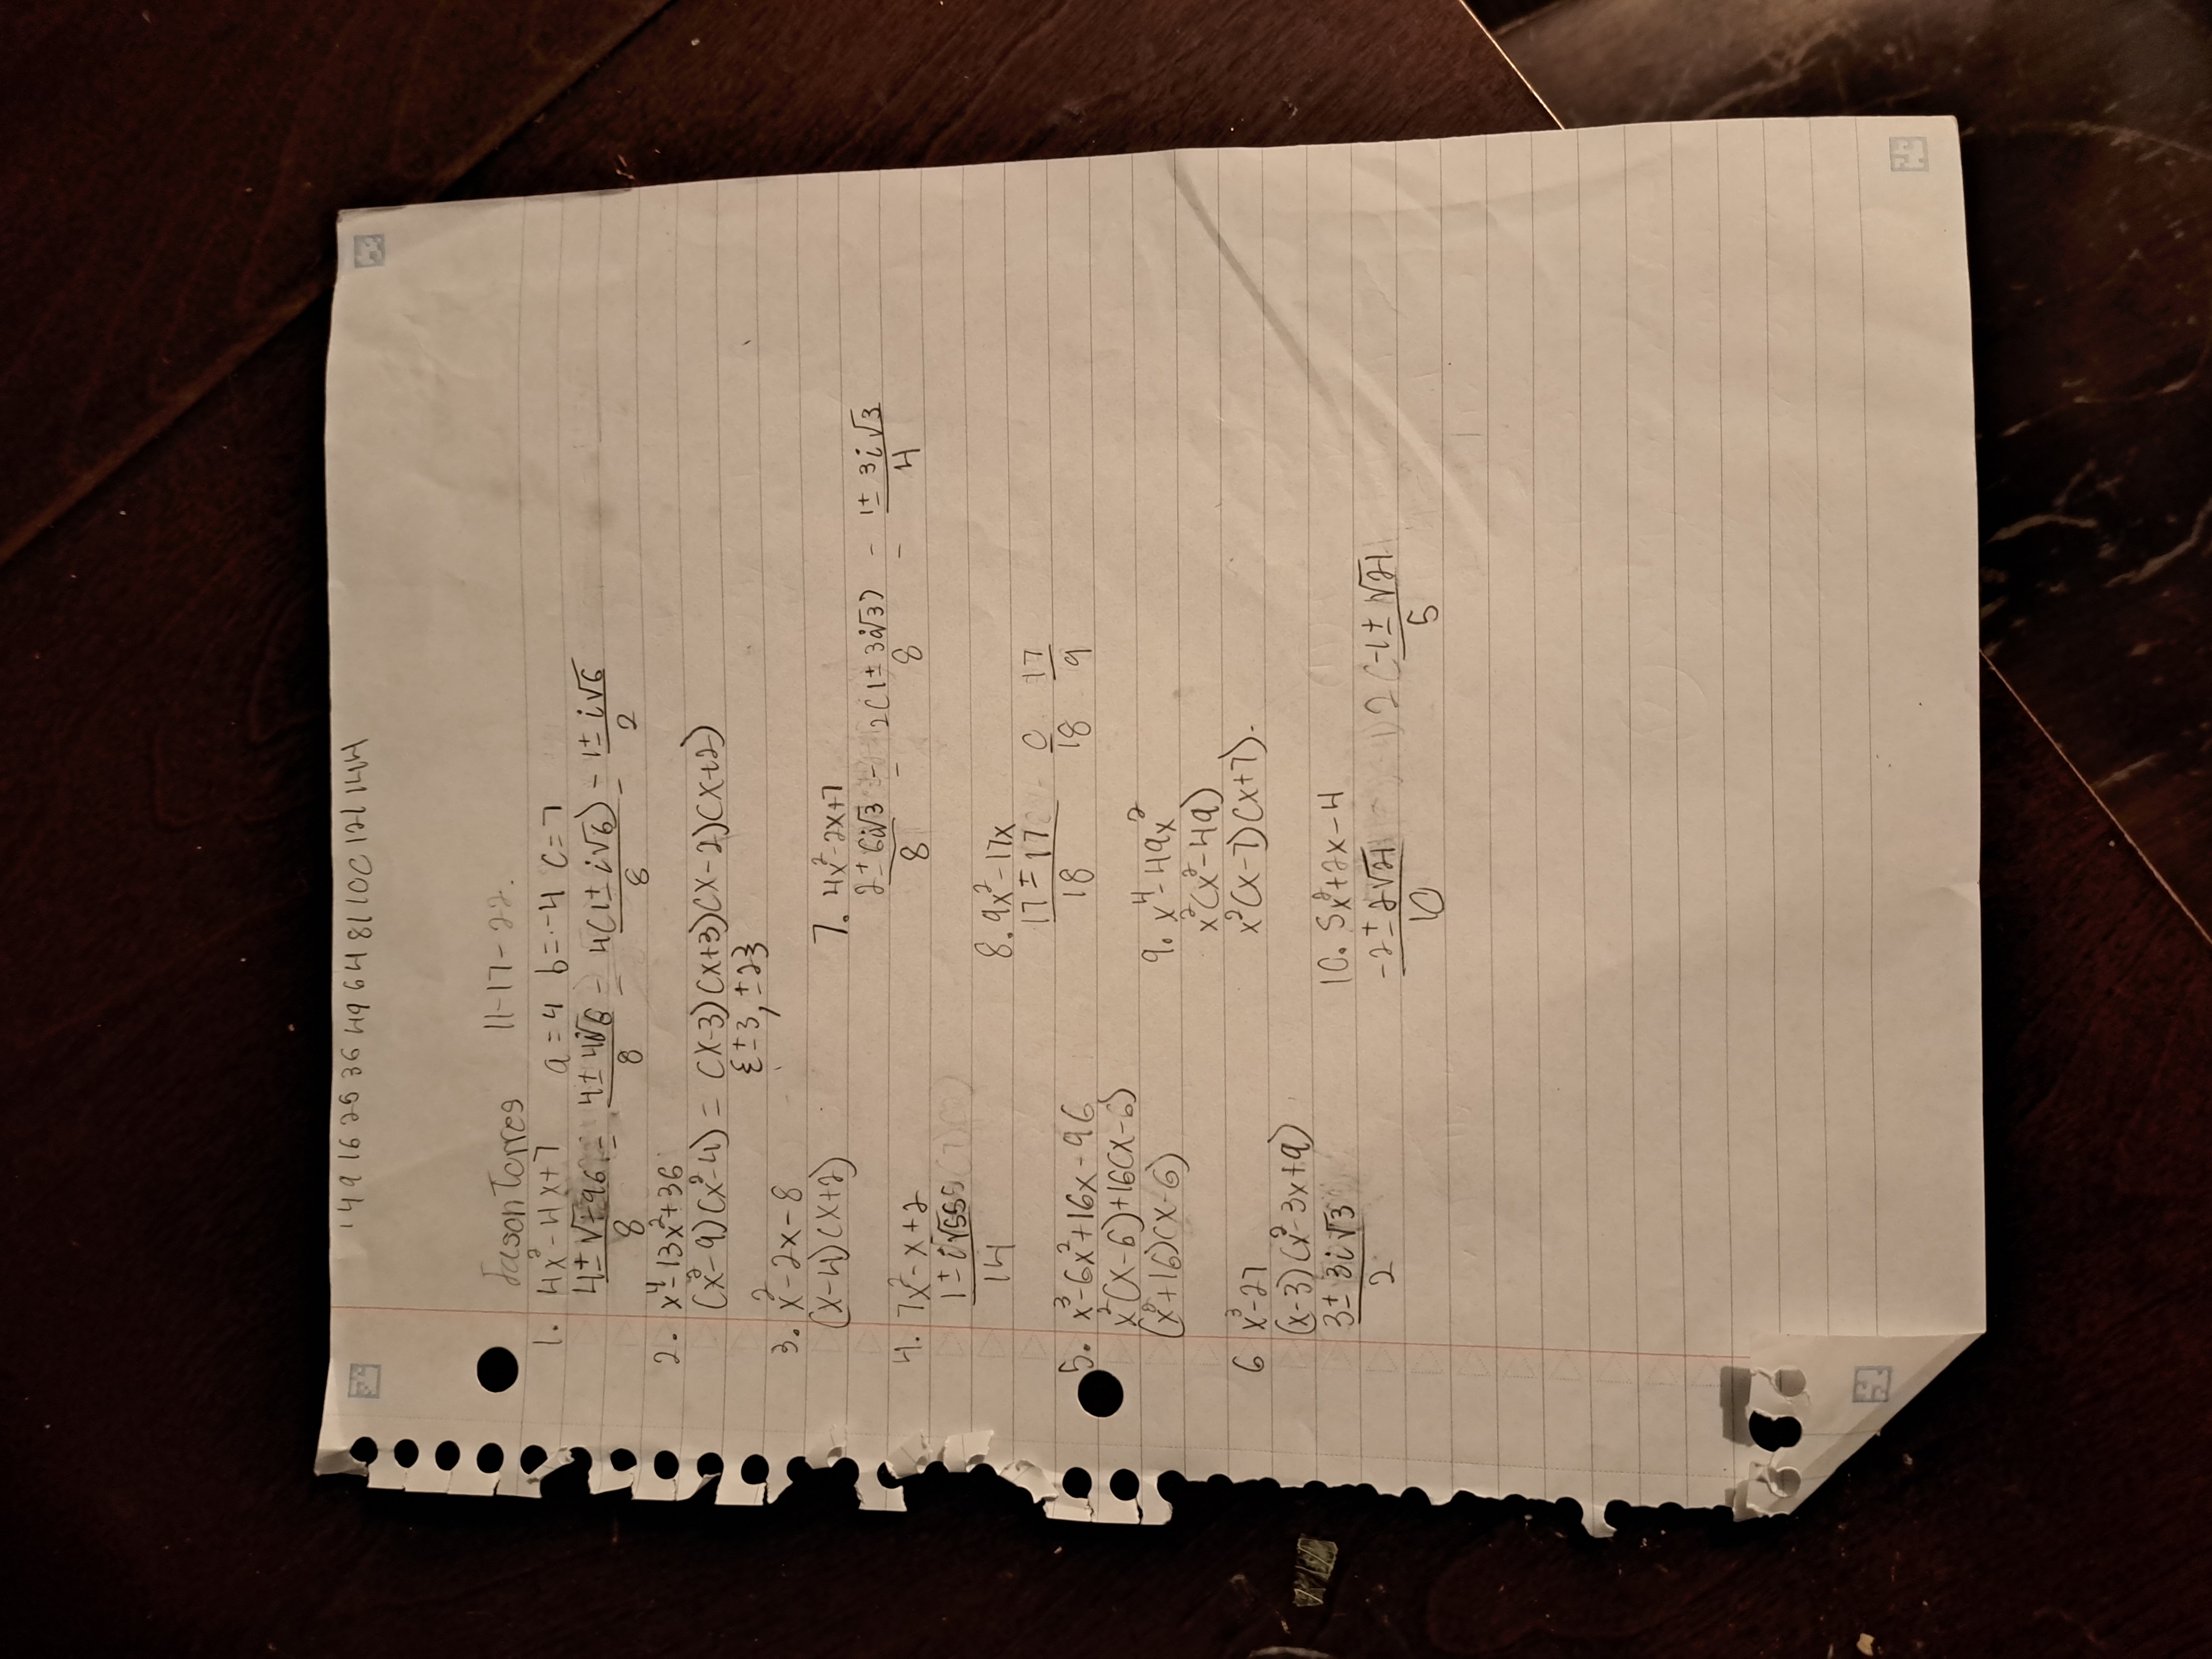 1 4 9 16 25 36 49 64 81 100 121 144
Jason Torres 11-17-22.
1. 4x²-4x+7 a=4 b=-4 c=7
4±√-96/8 = 4±4i√6/8 = 4(1±i√6)/8 = 1±i√6/2
2. x⁴-13x²+36
(x²-9)(x²-4) = (x-3)(x+3)(x-2)(x+2)
{±3, ±2}
3. x²-2x-8
(x-4)(x+2)
4. 7x²-x+2
1±i√555/14
5. x³-6x²+16x-96
x²(x-6)+16(x-6)
(x²+16)(x-6)
6 x³-27
(x-3)(x²-3x+9)
3±3i√3/2
7. 4x²-2x+7
2±6i√3/8 = 2(1±3i√3)/8 = 1±3i√3/4
8. 9x²-17x
17±17/18 0/18 17/9
9. x⁴-49x²
x²(x²-49)
x²(x-7)(x+7).
10. 5x²+2x-4
-2±2√21/10 2(-1±√21/5